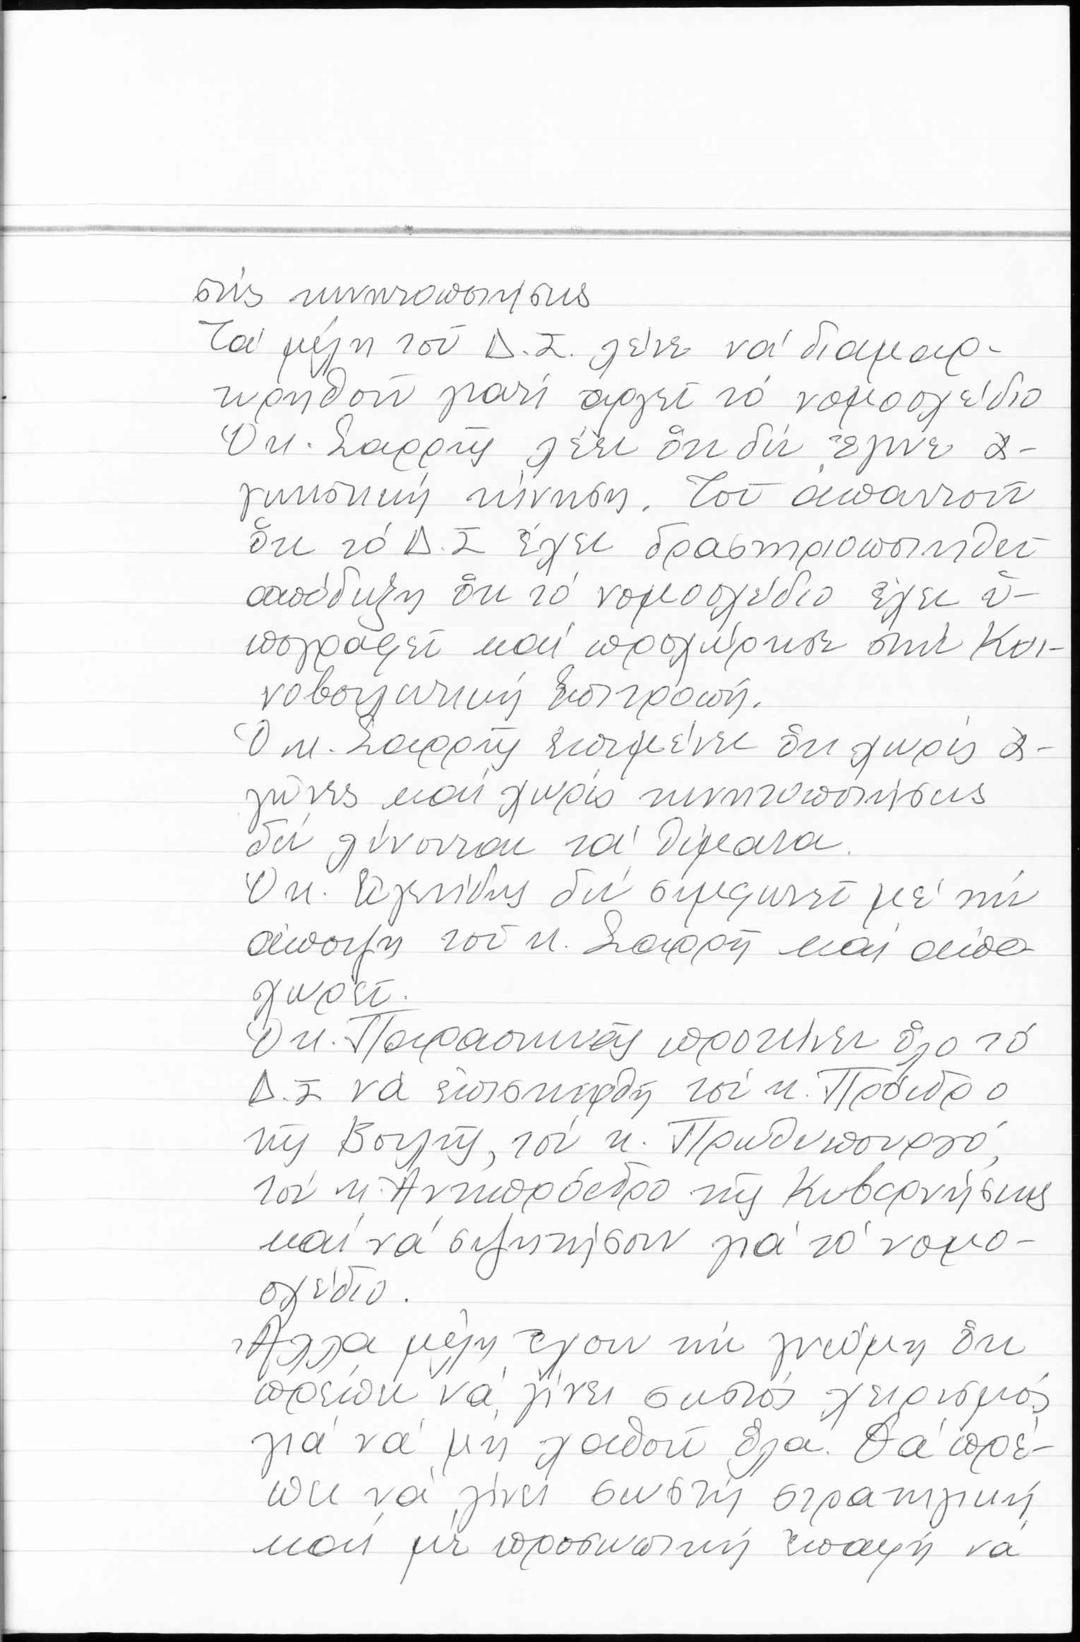 στίς κινητοποιήσεις
Τά μέλη τοῦ Δ.Σ. λένε νά διαμαρ-
τυρηθοῦν γιατί ἀργεῖ τό νομοσχέδιο
Ὁ κ. Σαρρῆς λέει ὅτι δέν ἔγινε ἀ-
γωνιστική κίνηση. Τοῦ ἀπαντοῦν
ὅτι τό Δ.Σ ἔχει δραστηριοποιηθεῖ
ἀπόδειξη ὅτι τό νομοσχέδιο ἔχει ὑ-
πογραφεῖ καί προχώρησε στήν Κοι-
νοβουλευτική Ἐπιτροπή.
Ὁ κ. Σαρρῆς ἐπιμένει ὅτι χωρίς ἀ-
γῶνες καί χωρίς κινητοποιήσεις
δέν λύνονται τά θέματα.
Ὁ κ. δέν συμφωνεῖ μέ τήν
ἄποψη τοῦ κ. Σαρρῆ καί ἀπο
χωρεῖ.
Ὁ κ. Παρασκευᾶς προτείνει ὅλο τό
Δ.Σ νά ἐπισκεφθῆ τόν κ. Πρόεδρο
τῆς Βουλῆς, τόν κ. Πρωθυπουργό,
τόν κ. Ἀντιπρόεδρο τῆς Κυβερνήσεως
καί νά συζητήσουν γιά τό νομο-
σχέδιο.
Ἄλλα μέλη ἔχουν τήν γνώμη ὅτι
πρέπει νά γίνει σωστός χειρισμός
γιά νά μή χαθοῦν ὅλα. Θά πρέ-
πει νά γίνει σωστή στρατηγική
καί μέ προσωπική ἐπαφή νά